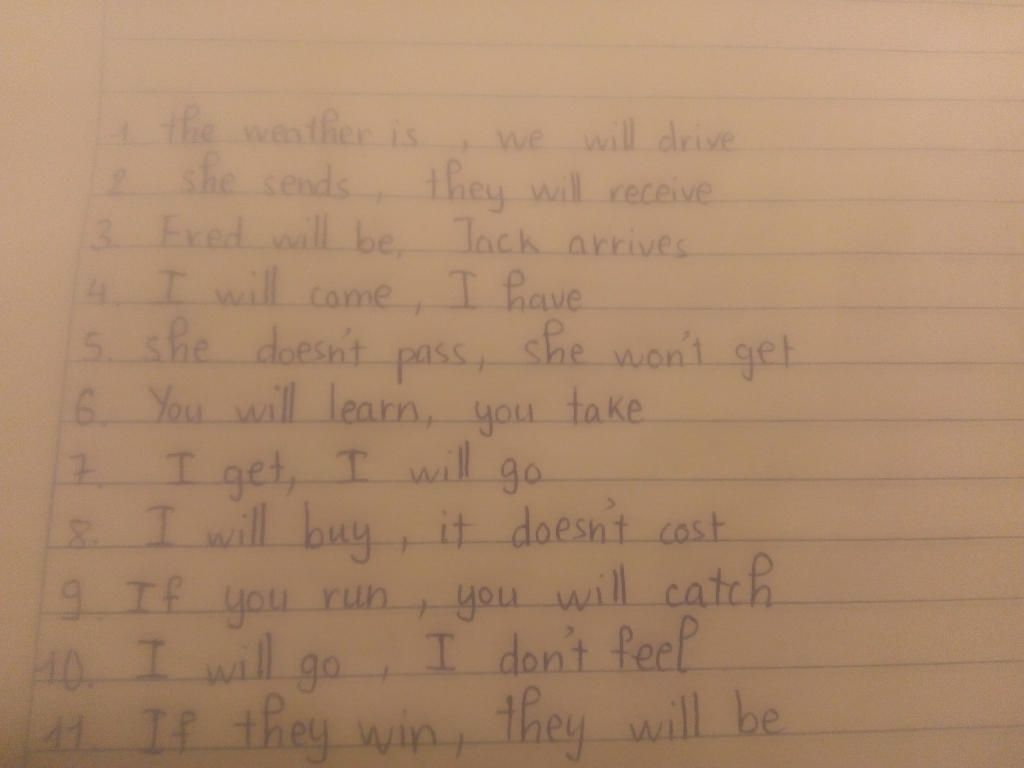 1. the weather is , we will drive
2 she sends, they will receive
3. Fred will be, Jack arrives
4. I will come, I have
5. she doesn't pass, she won't get
6. You will learn, you take
7. I get, I will go
8. I will buy, it doesn't cost
9 If you run, you will catch
10. I will go, I don't feel
11. If they win, they will be